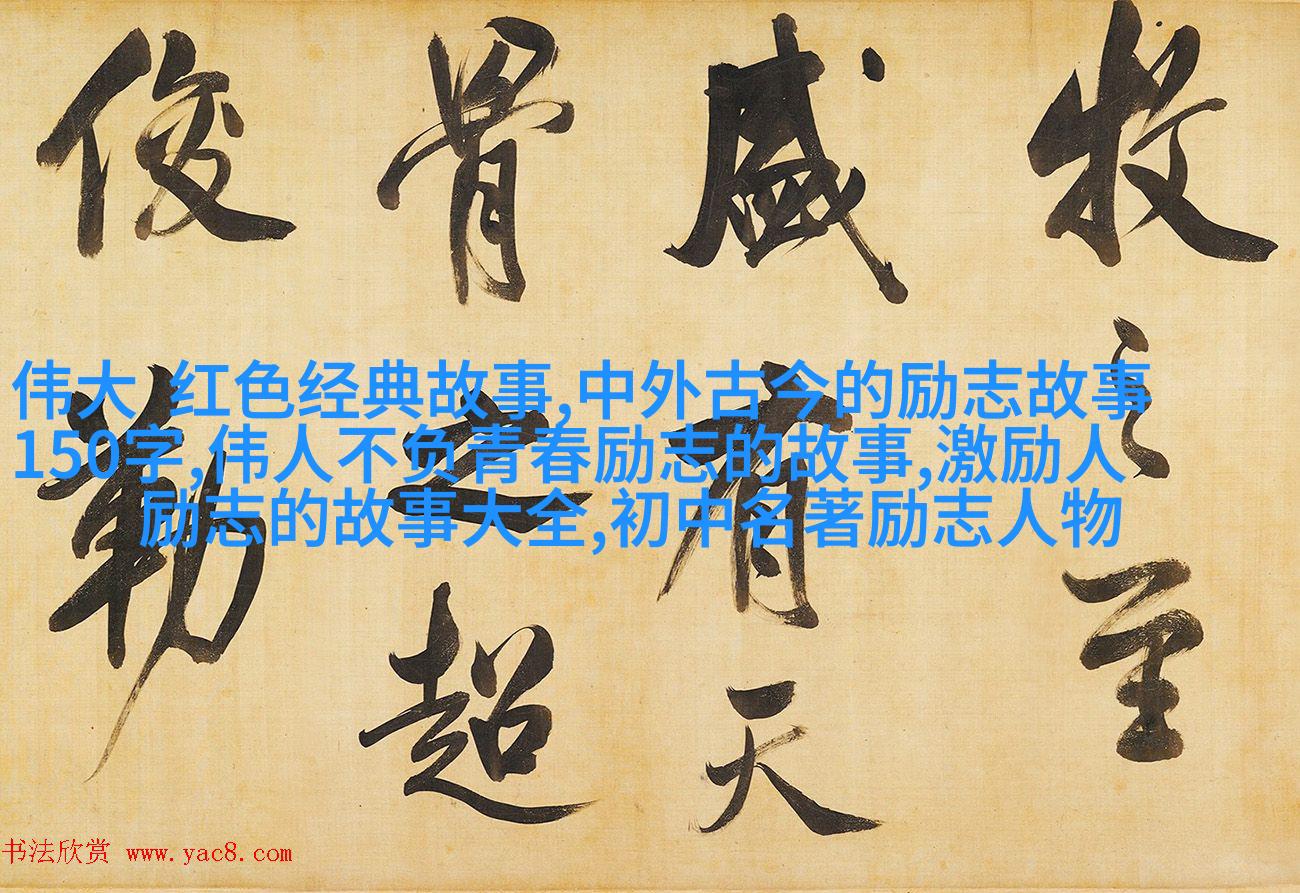 牧之至
盛有天
骨之超
俊勒
伟大 红色经典故事,中外古今的励志故事
150字,伟人不负青春励志的故事,激励人
励志的故事大全,初中名著励志人物
书法欣赏 www.yac8.com